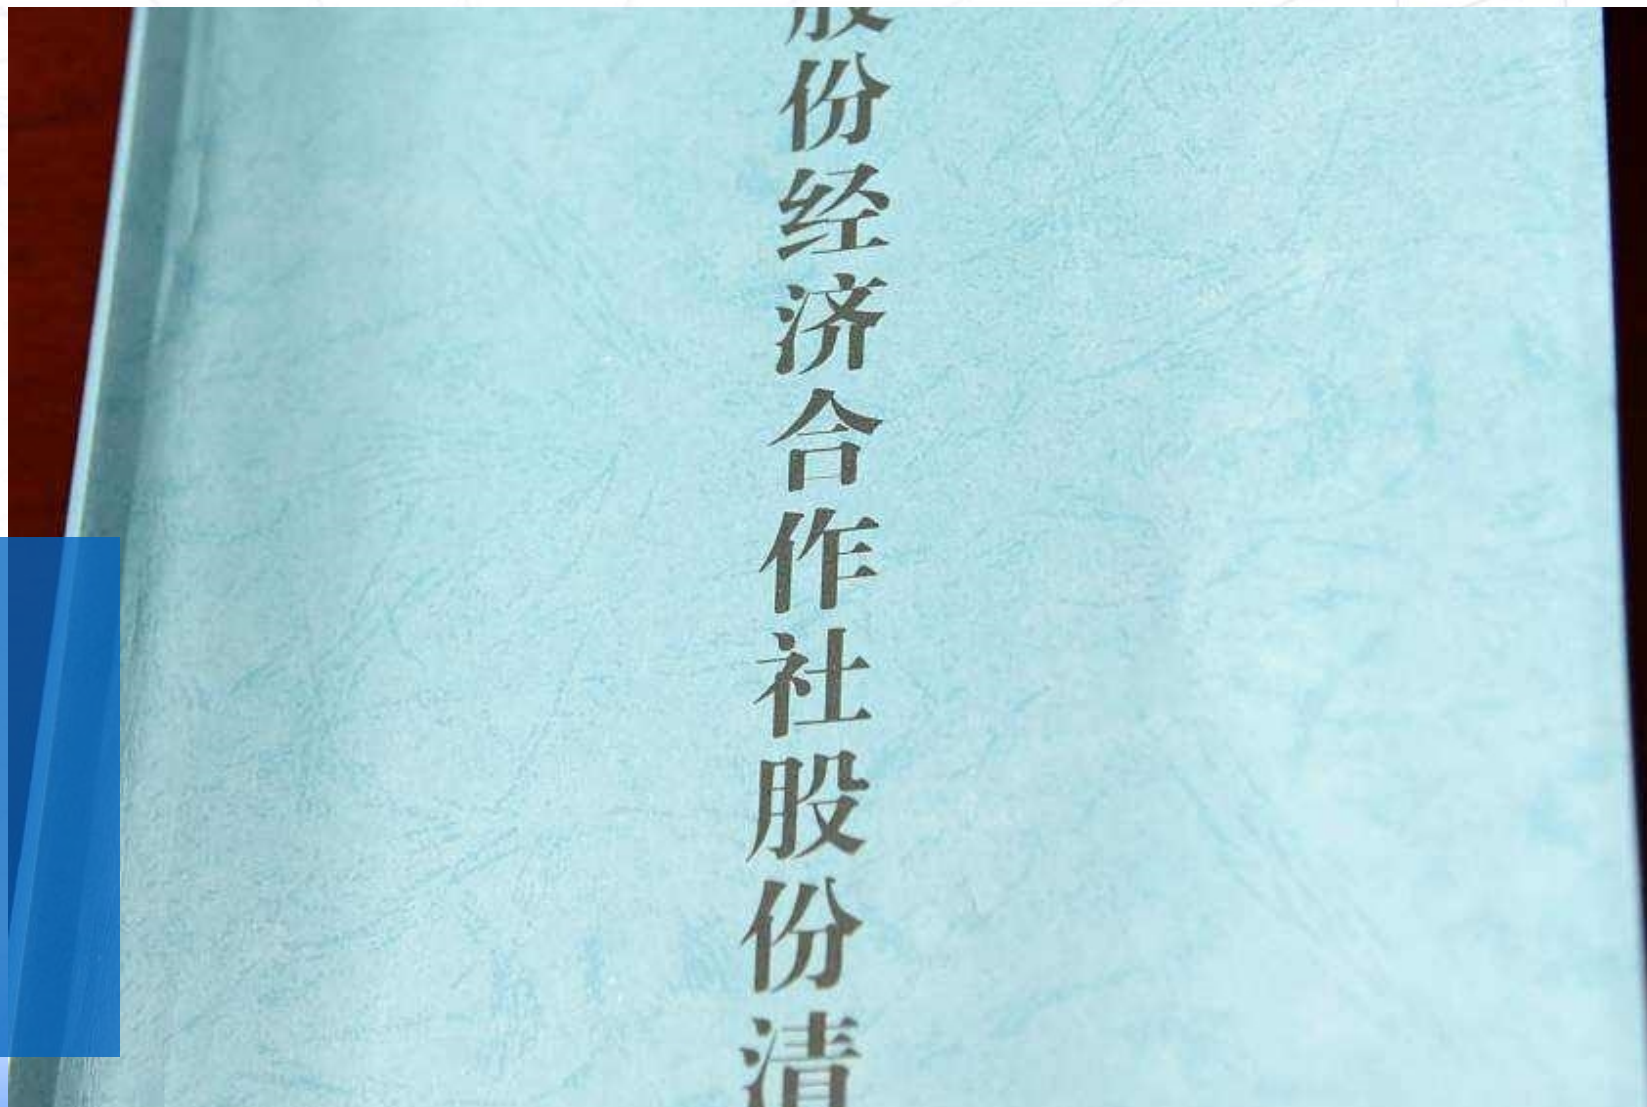 股份经济合作社股份清